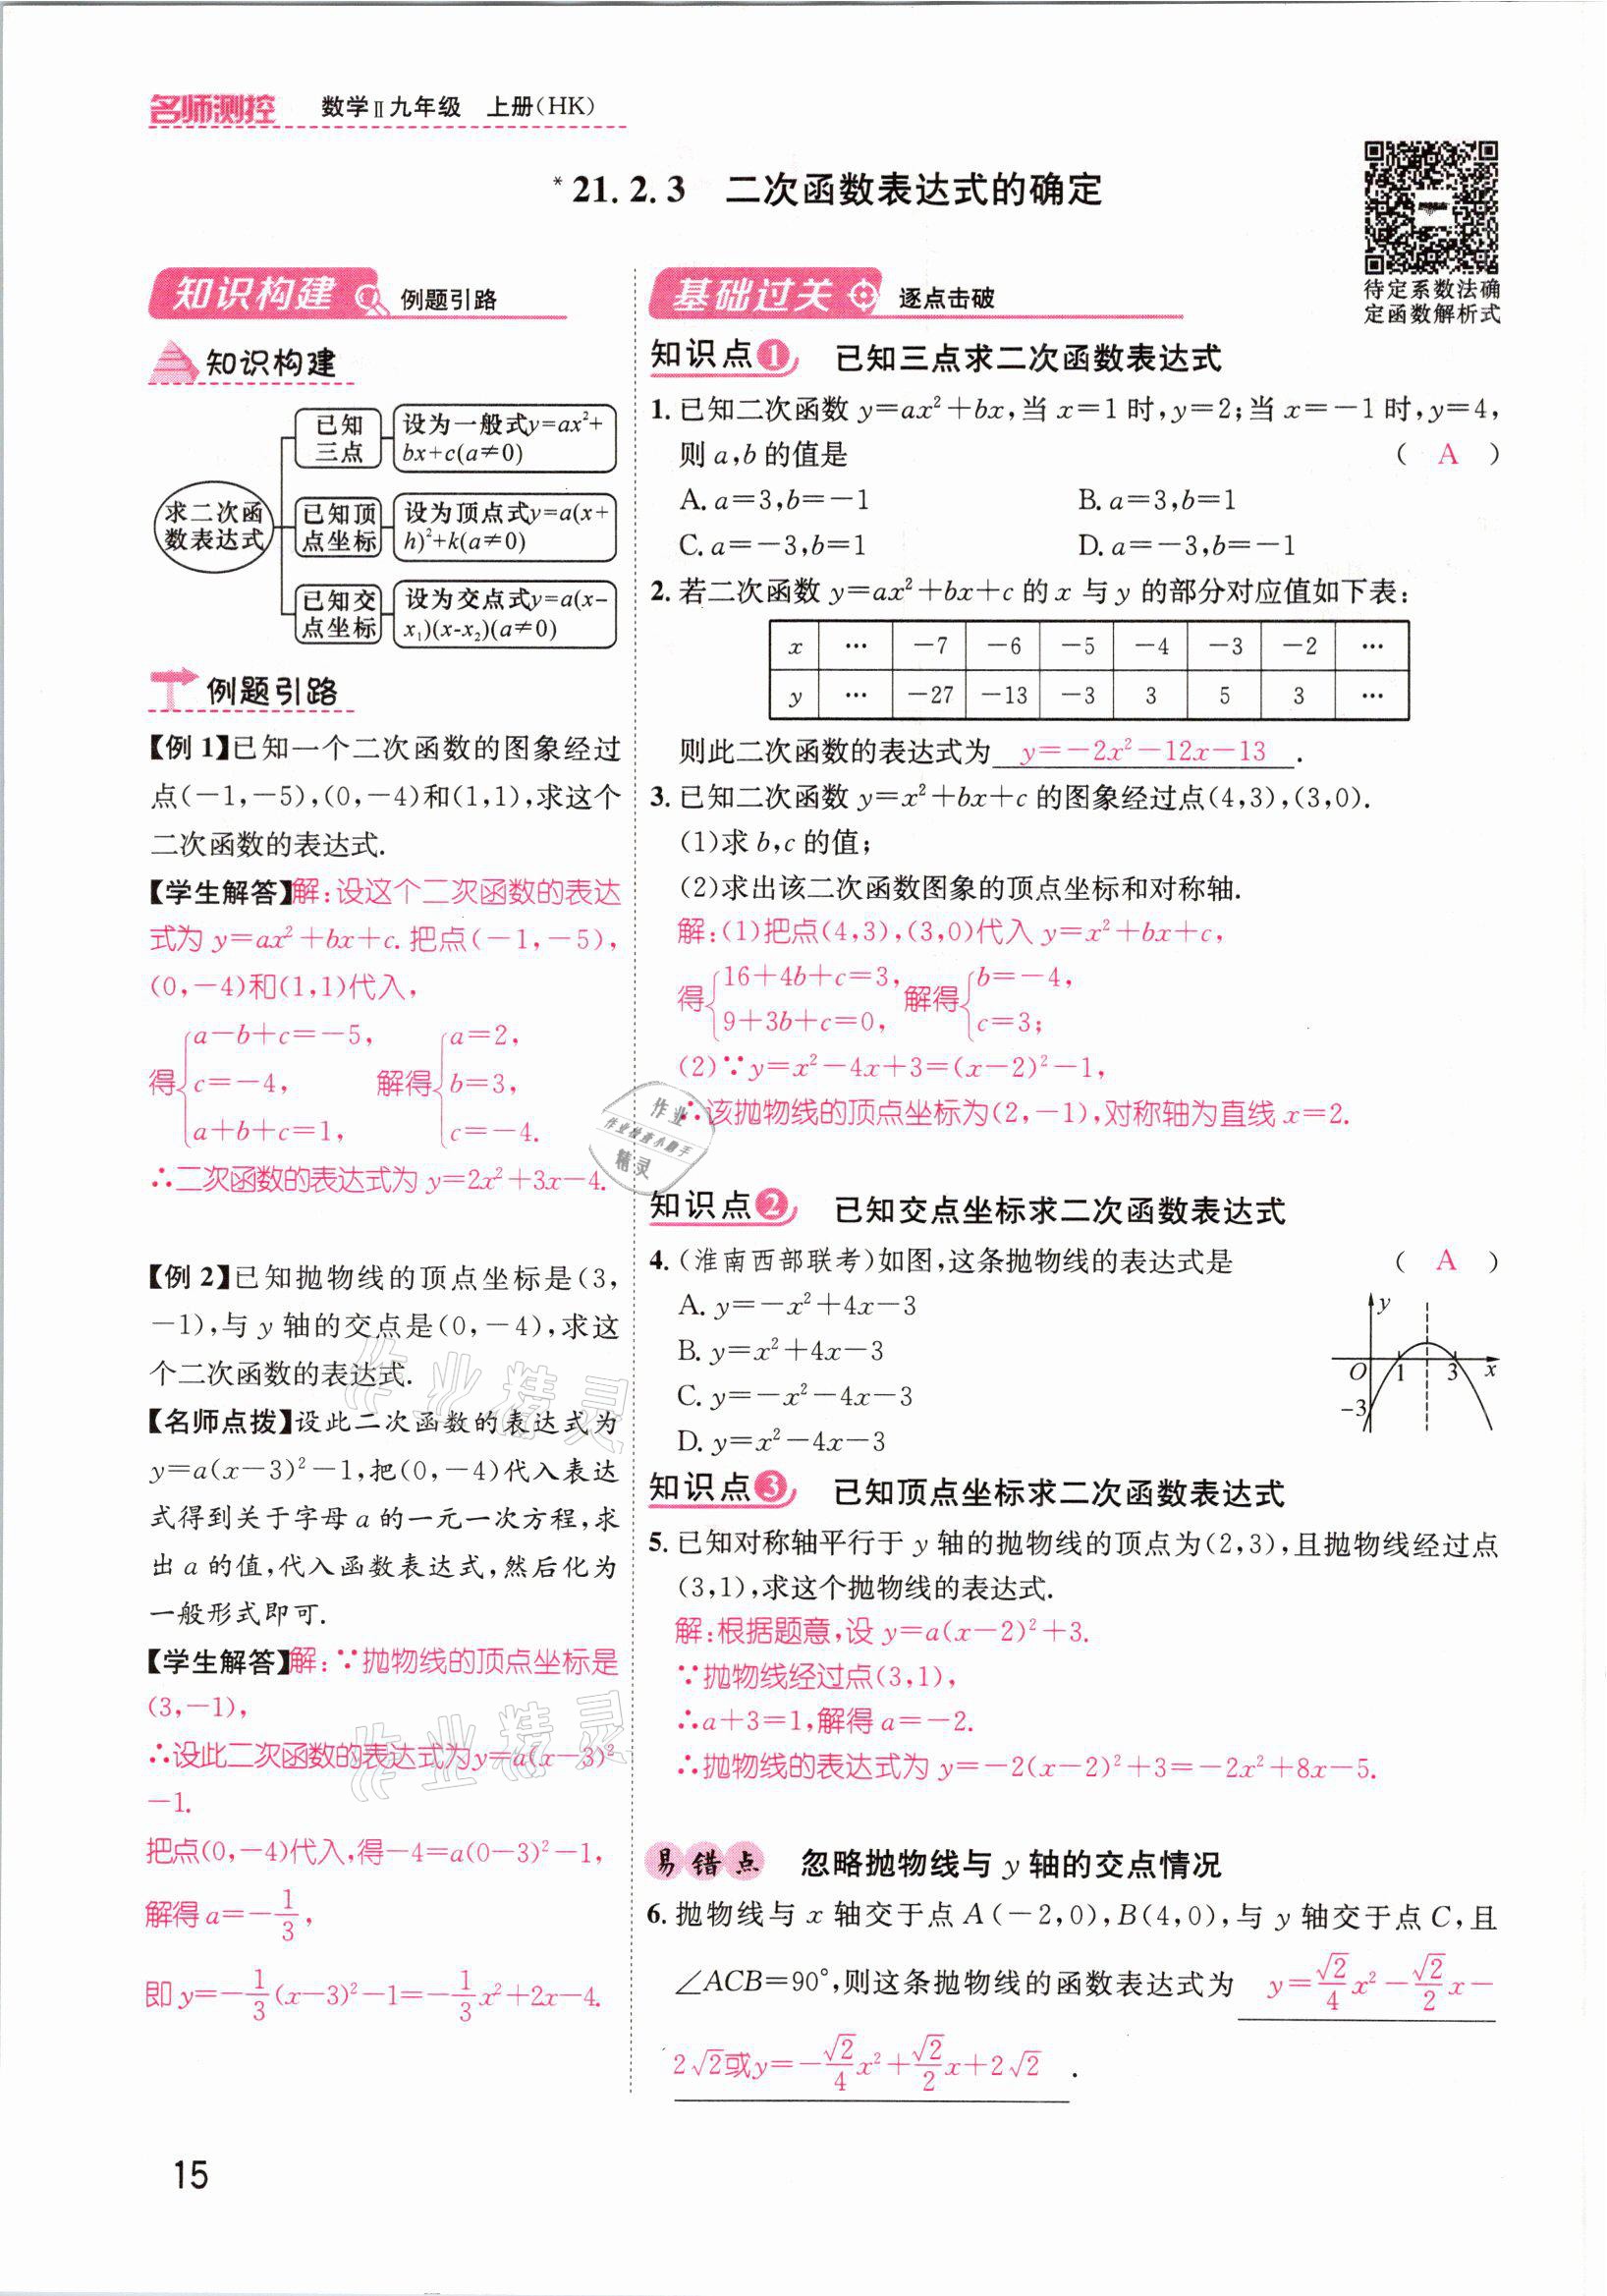 名师测控 数学Ⅱ九年级 上册(HK)
*21.2.3 二次函数表达式的确定
待定系数法确
定函数解析式
知识构建 例题引路
知识构建
求二次函
数表达式
已知
三点
设为一般式y=ax²+
bx+c(a≠0)
已知顶
点坐标
设为顶点式y=a(x+
h)²+k(a≠0)
已知交
点坐标
设为交点式y=a(x-
x₁)(x-x₂)(a≠0)
例题引路
【例1】已知一个二次函数的图象经过
点(-1,-5),(0,-4)和(1,1),求这个
二次函数的表达式.
【学生解答】解:设这个二次函数的表达
式为 y=ax²+bx+c.把点(-1,-5),
(0,-4)和(1,1)代入,
得{a-b+c=-5, c=-4, a+b+c=1, 解得{a=2, b=3, c=-4.
∴二次函数的表达式为 y=2x²+3x-4.
【例2】已知抛物线的顶点坐标是(3,
-1),与 y 轴的交点是(0,-4),求这
个二次函数的表达式.
【名师点拨】设此二次函数的表达式为
y=a(x-3)²-1,把(0,-4)代入表达
式得到关于字母 a 的一元一次方程,求
出 a 的值,代入函数表达式,然后化为
一般形式即可.
【学生解答】解:∵抛物线的顶点坐标是
(3,-1),
∴设此二次函数的表达式为y=a(x-3)²
-1.
把点(0,-4)代入,得-4=a(0-3)²-1,
解得 a=-1/3,
即 y=-1/3(x-3)²-1=-1/3x²+2x-4.
15
基础过关 逐点击破
知识点1 已知三点求二次函数表达式
1.已知二次函数 y=ax²+bx,当 x=1 时,y=2;当 x=-1 时,y=4,
则 a,b 的值是 ( A )
A.a=3,b=-1 B.a=3,b=1
C.a=-3,b=1 D.a=-3,b=-1
2.若二次函数 y=ax²+bx+c 的 x 与 y 的部分对应值如下表:
x … -7 -6 -5 -4 -3 -2 …
y … -27 -13 -3 3 5 3 …
则此二次函数的表达式为 y=-2x²-12x-13 .
3.已知二次函数 y=x²+bx+c 的图象经过点(4,3),(3,0).
(1)求 b,c 的值;
(2)求出该二次函数图象的顶点坐标和对称轴.
解:(1)把点(4,3),(3,0)代入 y=x²+bx+c,
得{16+4b+c=3, 9+3b+c=0, 解得{b=-4, c=3;
(2)∵y=x²-4x+3=(x-2)²-1,
∴该抛物线的顶点坐标为(2,-1),对称轴为直线 x=2.
作业
作业检查小助手
精灵
知识点2 已知交点坐标求二次函数表达式
4.(淮南西部联考)如图,这条抛物线的表达式是 ( A )
A.y=-x²+4x-3
B.y=x²+4x-3
C.y=-x²-4x-3
D.y=x²-4x-3
y
O 1 3 x
-3
知识点3 已知顶点坐标求二次函数表达式
5.已知对称轴平行于 y 轴的抛物线的顶点为(2,3),且抛物线经过点
(3,1),求这个抛物线的表达式.
解:根据题意,设 y=a(x-2)²+3.
∵抛物线经过点(3,1),
∴a+3=1,解得 a=-2.
∴抛物线的表达式为 y=-2(x-2)²+3=-2x²+8x-5.
易错点 忽略抛物线与 y 轴的交点情况
6.抛物线与 x 轴交于点 A(-2,0),B(4,0),与 y 轴交于点 C,且
∠ACB=90°,则这条抛物线的函数表达式为 y=√2/4x²-√2/2x-
2√2或y=-√2/4x²+√2/2x+2√2 .
作业精灵
作业精灵